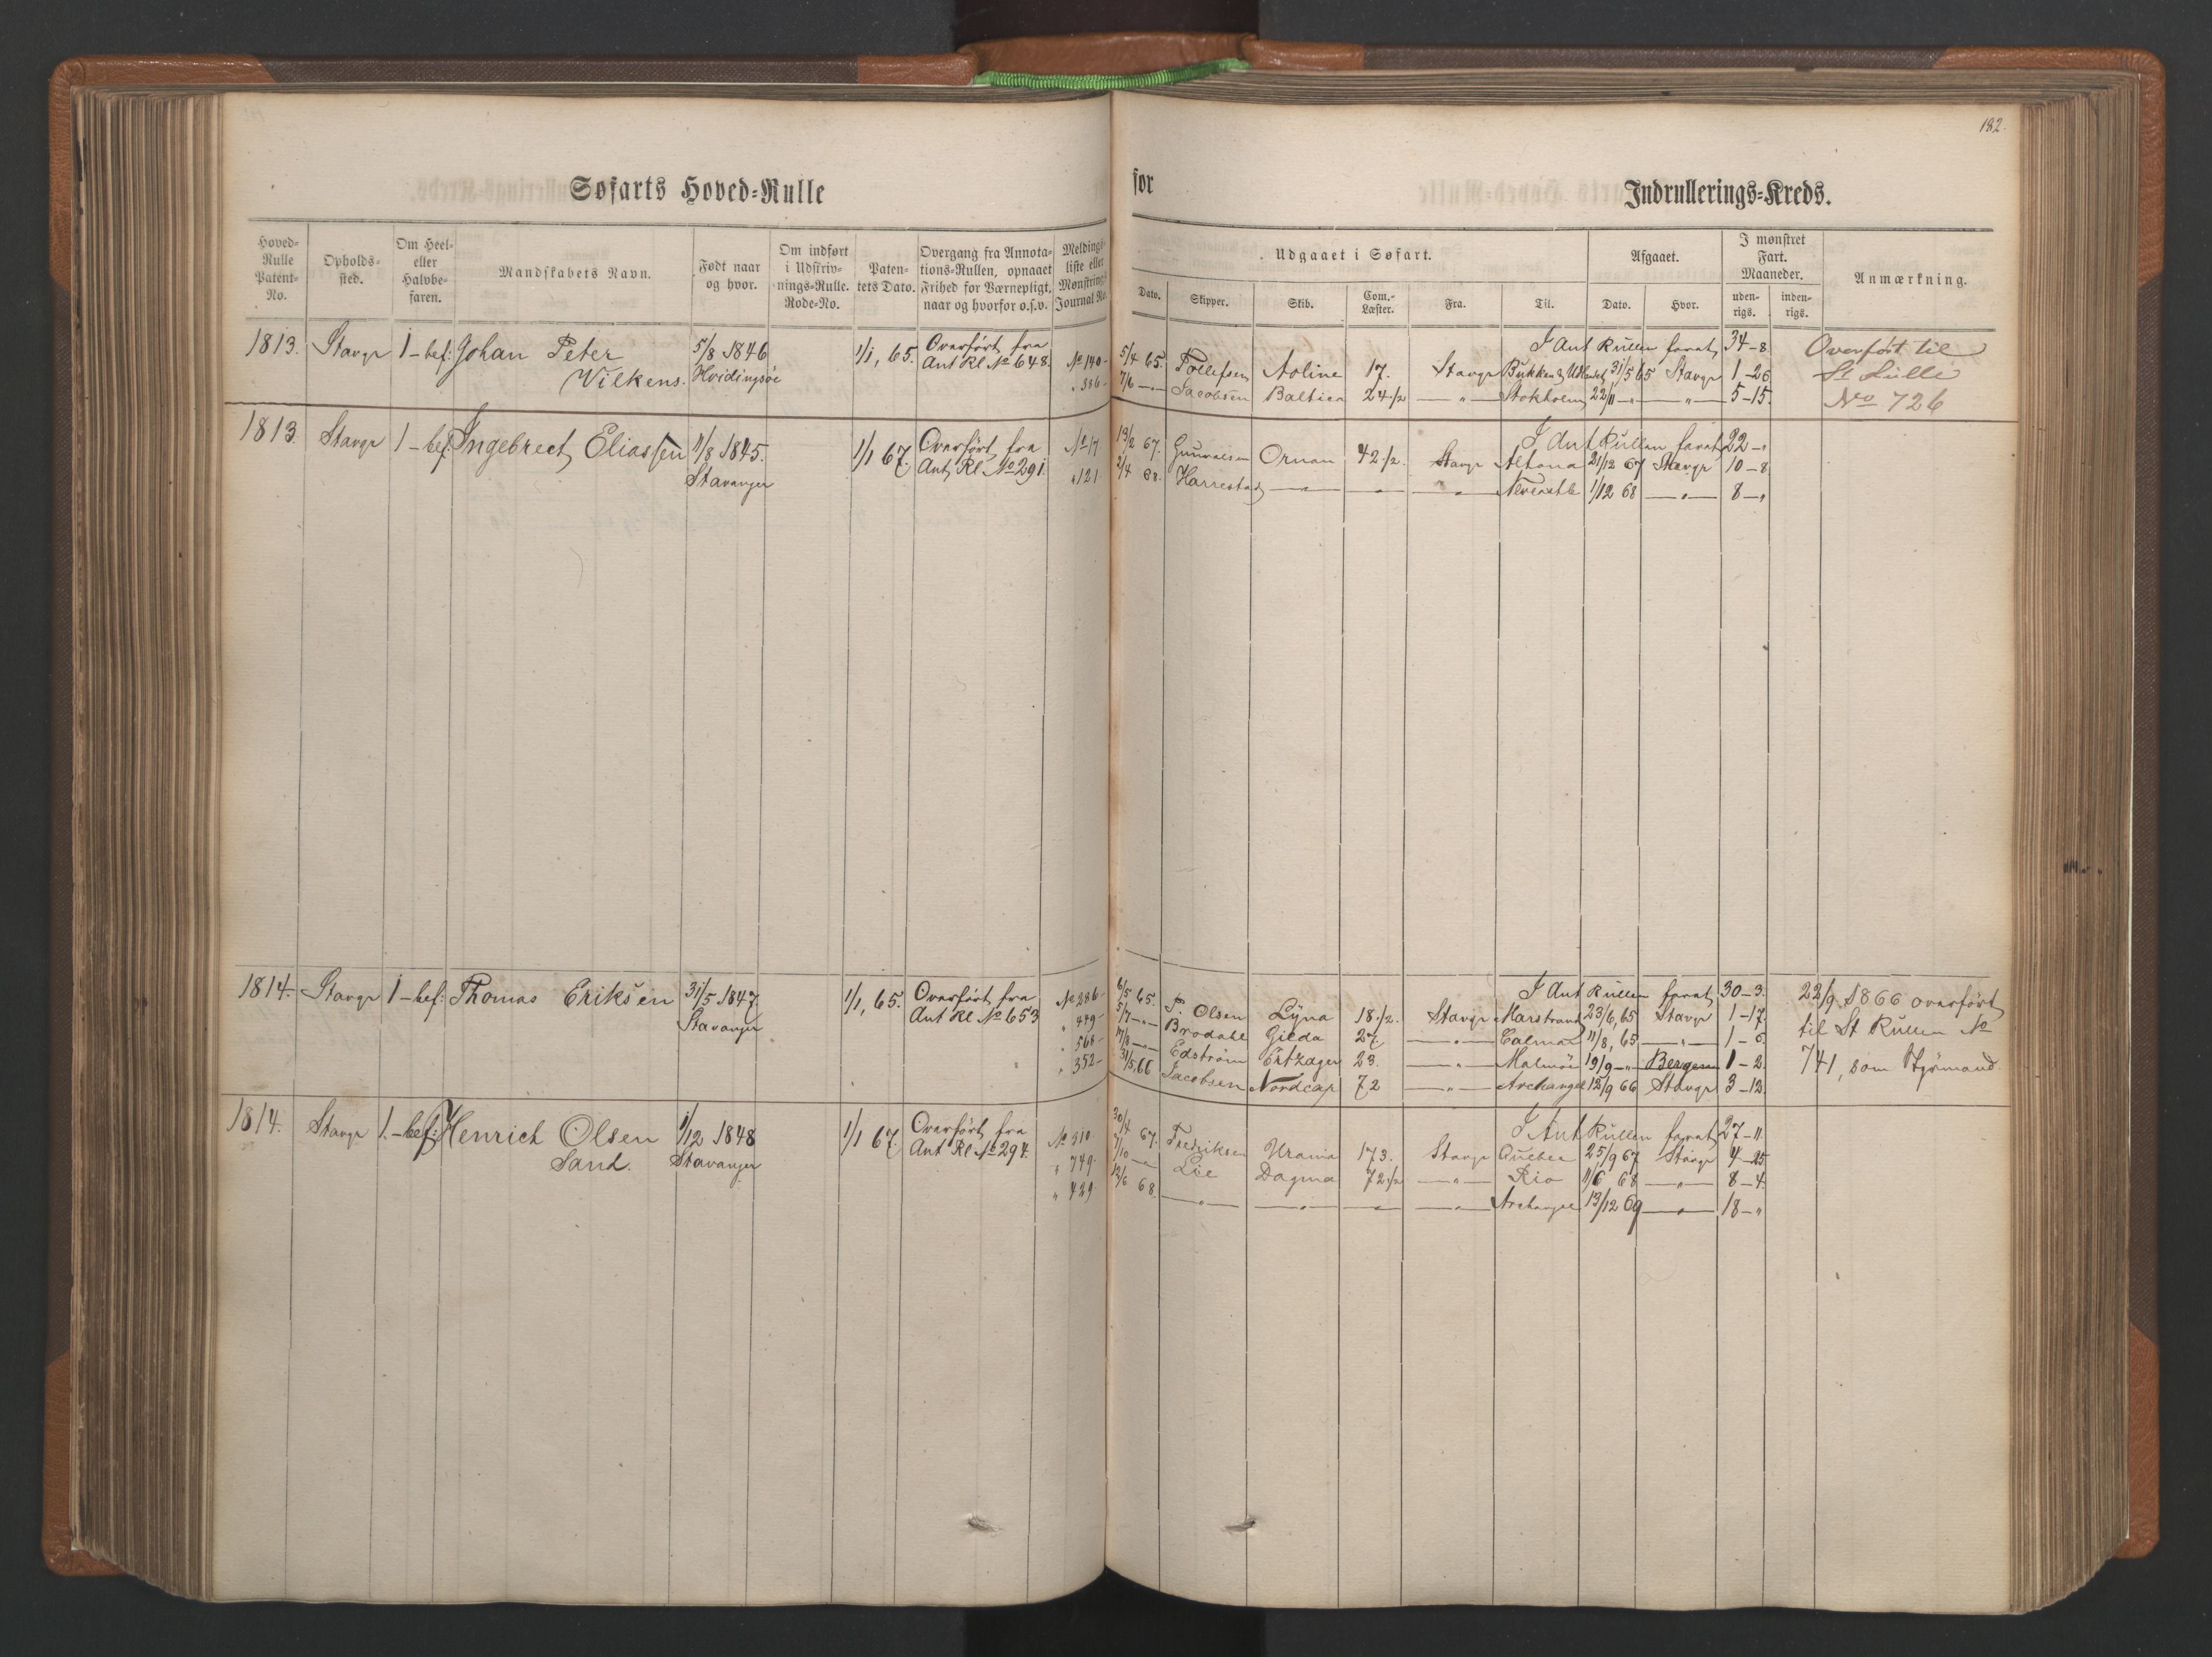 182.
Søfarts Hoved-Rulle for Indrullerings-Kreds.
Hoved-Rulle Patent-No.
Opholds-sted.
Om Heel- eller Halvbe-faren.
Mandskabets Navn.
Født naar og hvor.
Om indført i Udskriv-nings-Rulle. Rode-No.
Paten-tets Dato.
Overgang fra Annota-tions-Rullen, opnaaet Frihed for Værnepligt, naar og hvorfor o.s.v.
Meldings-liste eller Mønstrings Journal No.
Udgaaet i Søfart.
Dato. Skipper. Skib. Com.-Læster. Fra. Til.
Afgaaet.
Dato. Hvor.
I mønstret Fart. Maaneder.
uden-rigs. inden-rigs.
Anmærkning.
1813. Stavgr 1-bef: Johan Peter 5/8 1846 1/1, 65. Overført fra I Ant Rullen faret 34-8 Overført til
Wilkens. Hvidingsøe Ant Rl No 648. No 140- 5/4 65. Tollefsen Aoline 17. Stavgr 31/5 65 Stavgr 1-26 St Rulle
" 386- 7/6 -"- Jacobsen Baltica 24 1/2 -"- Stokholm 22/11 -"- -"- 5-15. No 726
1813 Stavgr 1-bef. Ingebrect Eliassen 11/8 1845. 1/1 67. Overført fra I Ant Rullen faret 22-"
Stavanger Ant Rl No 291 No 17 13/2 67. Gunvalsen Ornan 42 1/2. Stavgr Altona 21/12 67 Stavgr 10-8
" 121 2/4 68. Harrestad -"- -"- -"- 1/12 68 -"- 8-"
1814. Stavgr 1-bef: Thomas Eriksen 31/5 1847. 1/1, 65. Overført fra I Ant Rullen faret 30-3. 22/9 1866 overført
Stavanger Ant Rl No 653 No 286- 6/5 65. P. Olsen Lyna 18 1/2. Stavgr Marstrand 23/6, 65 Stavgr 1-17. til St Rullen No
" 449- 5/7 -"- Brodahl Gilda 27. -"- Calmar 11/8, 65 -"- 1-6. 741, som Styrmand.
" 568- 17/8 -"- Edström Ertzager 23. -"- Malmöe 19/9 -"- Bergen 1-2.
" 352- 31/5, 66 Jacobsen Nordcap 72 -"- Archangel 12/9 66 Stavgr 3-12.
1814. Stavgr 1.-bef: Henrich Olsen 1/12 1848 1/1 67. Overført fra I Ant Rullen faret 27-11.
Sand. Stavanger Ant Rl No 294. No 310. 30/4 67. Fredriksen Urania 173. Stavgr Quebec 25/9 67 Stavgr 4-25.
" 749. 7/10 -"- Lie Dagma 72 1/2 -"- Rio 11/6 68 -"- 8-4.
" 429 12/6 68. -"- -"- -"- -"- Archangel 13/12 69 -"- 18-"